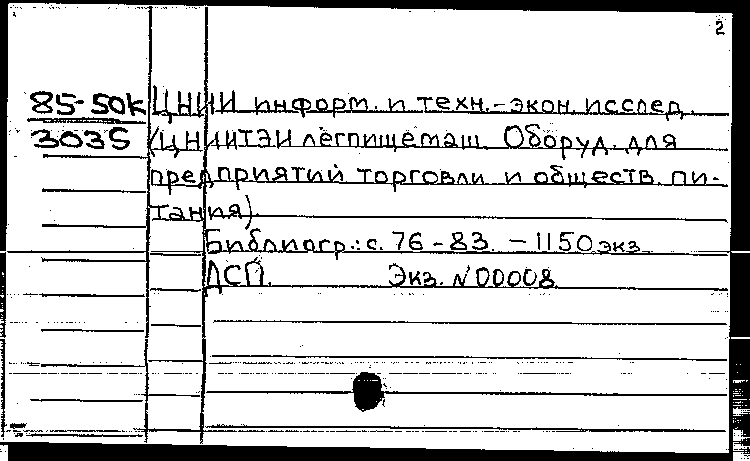 2
85-50к ЦНИИ информ. и техн.-экон. исслед.
3035 (ЦНИИТЭИ легпищемаш. Оборуд. для
предприятий торговли и обществ. пи-
тания).
Библиогр.: с. 76-83. - 1150 экз.
ДСП. Экз. N 00008